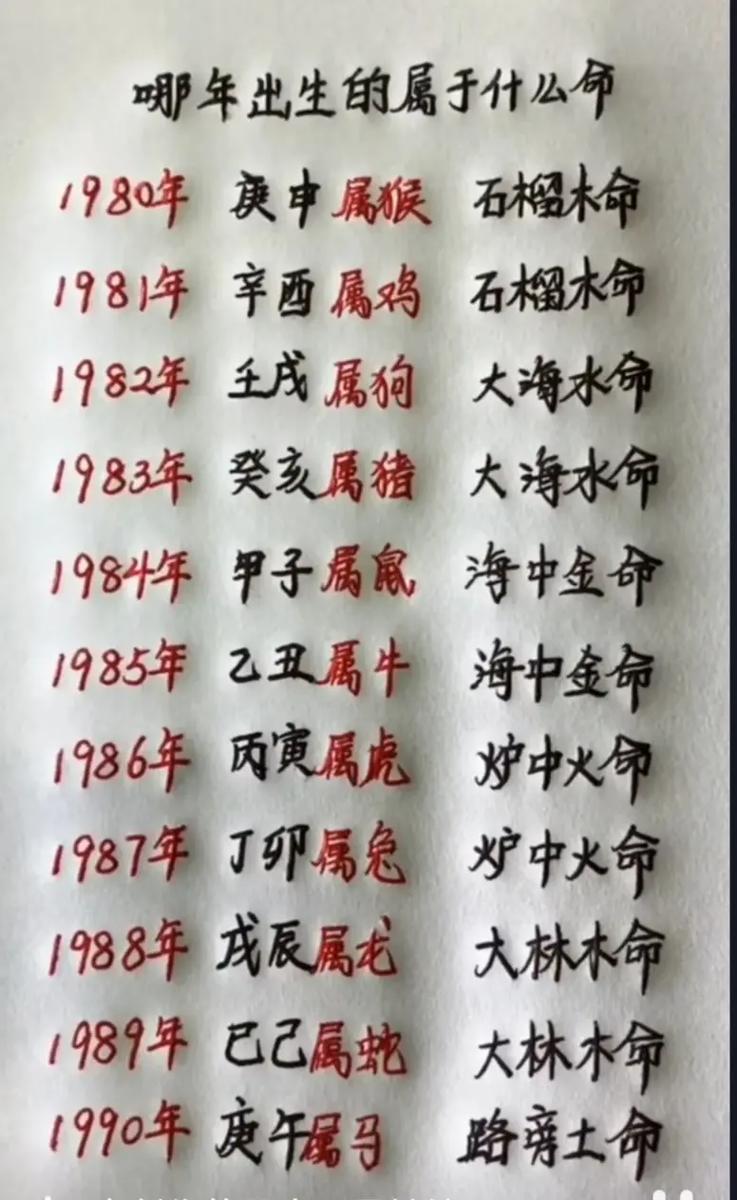 哪年出生的属于什么命
1980年 庚申 属猴 石榴木命
1981年 辛酉 属鸡 石榴木命
1982年 壬戌 属狗 大海水命
1983年 癸亥 属猪 大海水命
1984年 甲子 属鼠 海中金命
1985年 乙丑 属牛 海中金命
1986年 丙寅 属虎 炉中火命
1987年 丁卯 属兔 炉中火命
1988年 戊辰 属龙 大林木命
1989年 已己 属蛇 大林木命
1990年 庚午 属马 路旁土命